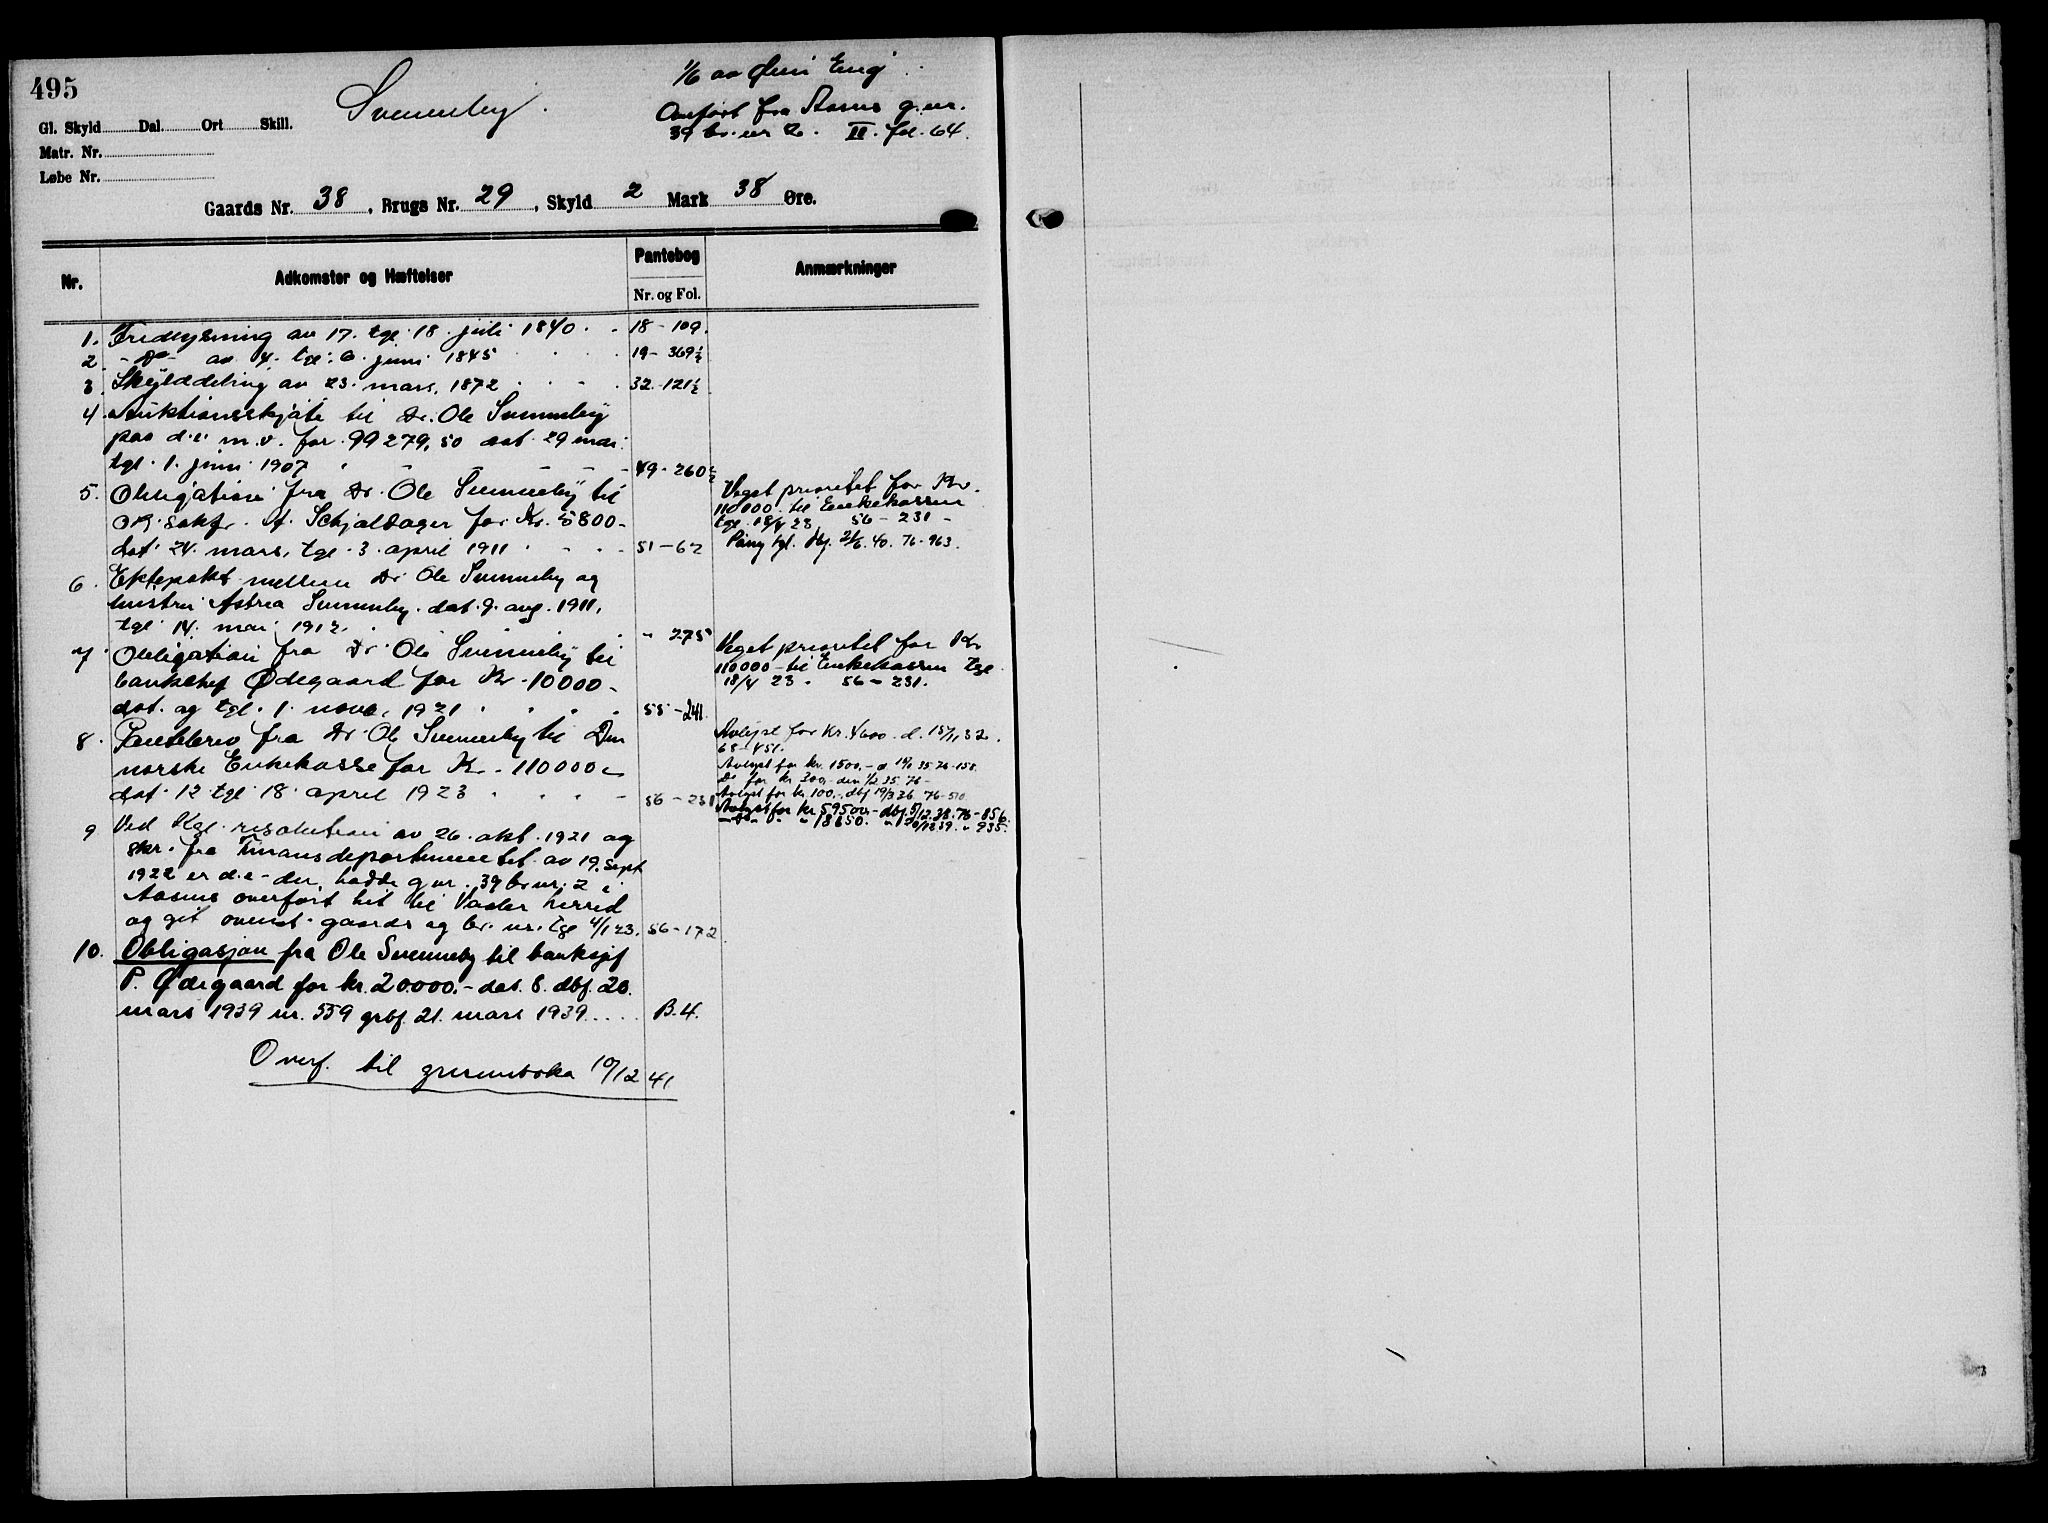 495
Svenneby.
1/6 av Øvri Eng
Overført fra Aasnes g.nr.
39 br.nr 2. II. fol. 64.
Gl. Skyld Dal. Ort Skill.
Matr. Nr.
Løbe Nr.
Gaards Nr. 38, Brugs Nr. 29, Skyld 2 Mark 38 Øre.
Nr. Adkomster og Hæftelser Pantebog Anmærkninger
Nr. og Fol.
1. Fredlysning av 17. tgl. 18. juli 1840. 18-109.
2. -Do- av 4. tgl. 6. juni 1845 19-369½
3. Skylddeling av 23. mars. 1872 32-121½
4. Auktionsskjøte til Dr. Ole Svenneby
paa d.e. m.v. for 99279,50 dat. 29 mai
tgl. 1. juni 1907 49-260½
5. Obligation fra Dr. Ole Svenneby til
O.R. sakfr. A. Schjoldager for Kr. 5800-
dat. 24. mars, tgl. 3. april 1911 51-62
Veget prioritet for Kr.
110000 til Enkekassen
tgl. 18/4 23 56-231-
Påny tgl. dbf. 21/6. 40. 76-963.
6. Ektepakt mellem Dr Ole Svenneby og
hustru Astrea Svenneby. dat. 9. aug. 1911,
tgl. 14. mai 1912. " 275
7. Obligation fra Dr. Ole Svenneby til
bankchef Ødegaard for Kr. 10000-
dat. og tgl. 1. novb. 1921 55-241.
Veget prioritet for Kr
110000- til Enkekassen tgl.
18/4 23. 56-231.
8. Pantebrev fra Dr. Ole Svenneby til Den
norske Enkekasse for Kr. 110000-
dat. 12 tgl. 18. april 1923 56-231
Avlyst for Kr. 4600. d. 15/1, 32.
68-451.
Avlyst for kr. 1500.- d 35 76-158.
Do for kr. 300,- den 1/2 35 76-
Avlyst for kr 100,- dbf 19/3 36 76-510
Avlyst for kr 59500.- dbf. 5/12.38. 76-856.
-"- " " 18650. " 20/12 39. " 935.
9 Ved Kgl. resolution av 26. okt. 1921 og
skr. fra Finansdepartementet av 19. sept
1922 er d.e - der hadde g.nr. 39 br.nr. 2 i
Aasnes overført hit til Vaaler herred
og git ovenst. gaards og br. nr. tgl 4/1 23. 56-172
10. Obligasjon fra Ole Svenneby til banksjef
P. Ødegaard for kr. 20000.- dat. 8. dbf. 20.
mars 1939 nr. 559 grbf. 21. mars 1939.... B.4.
Overf. til grunnboka 10/12 41